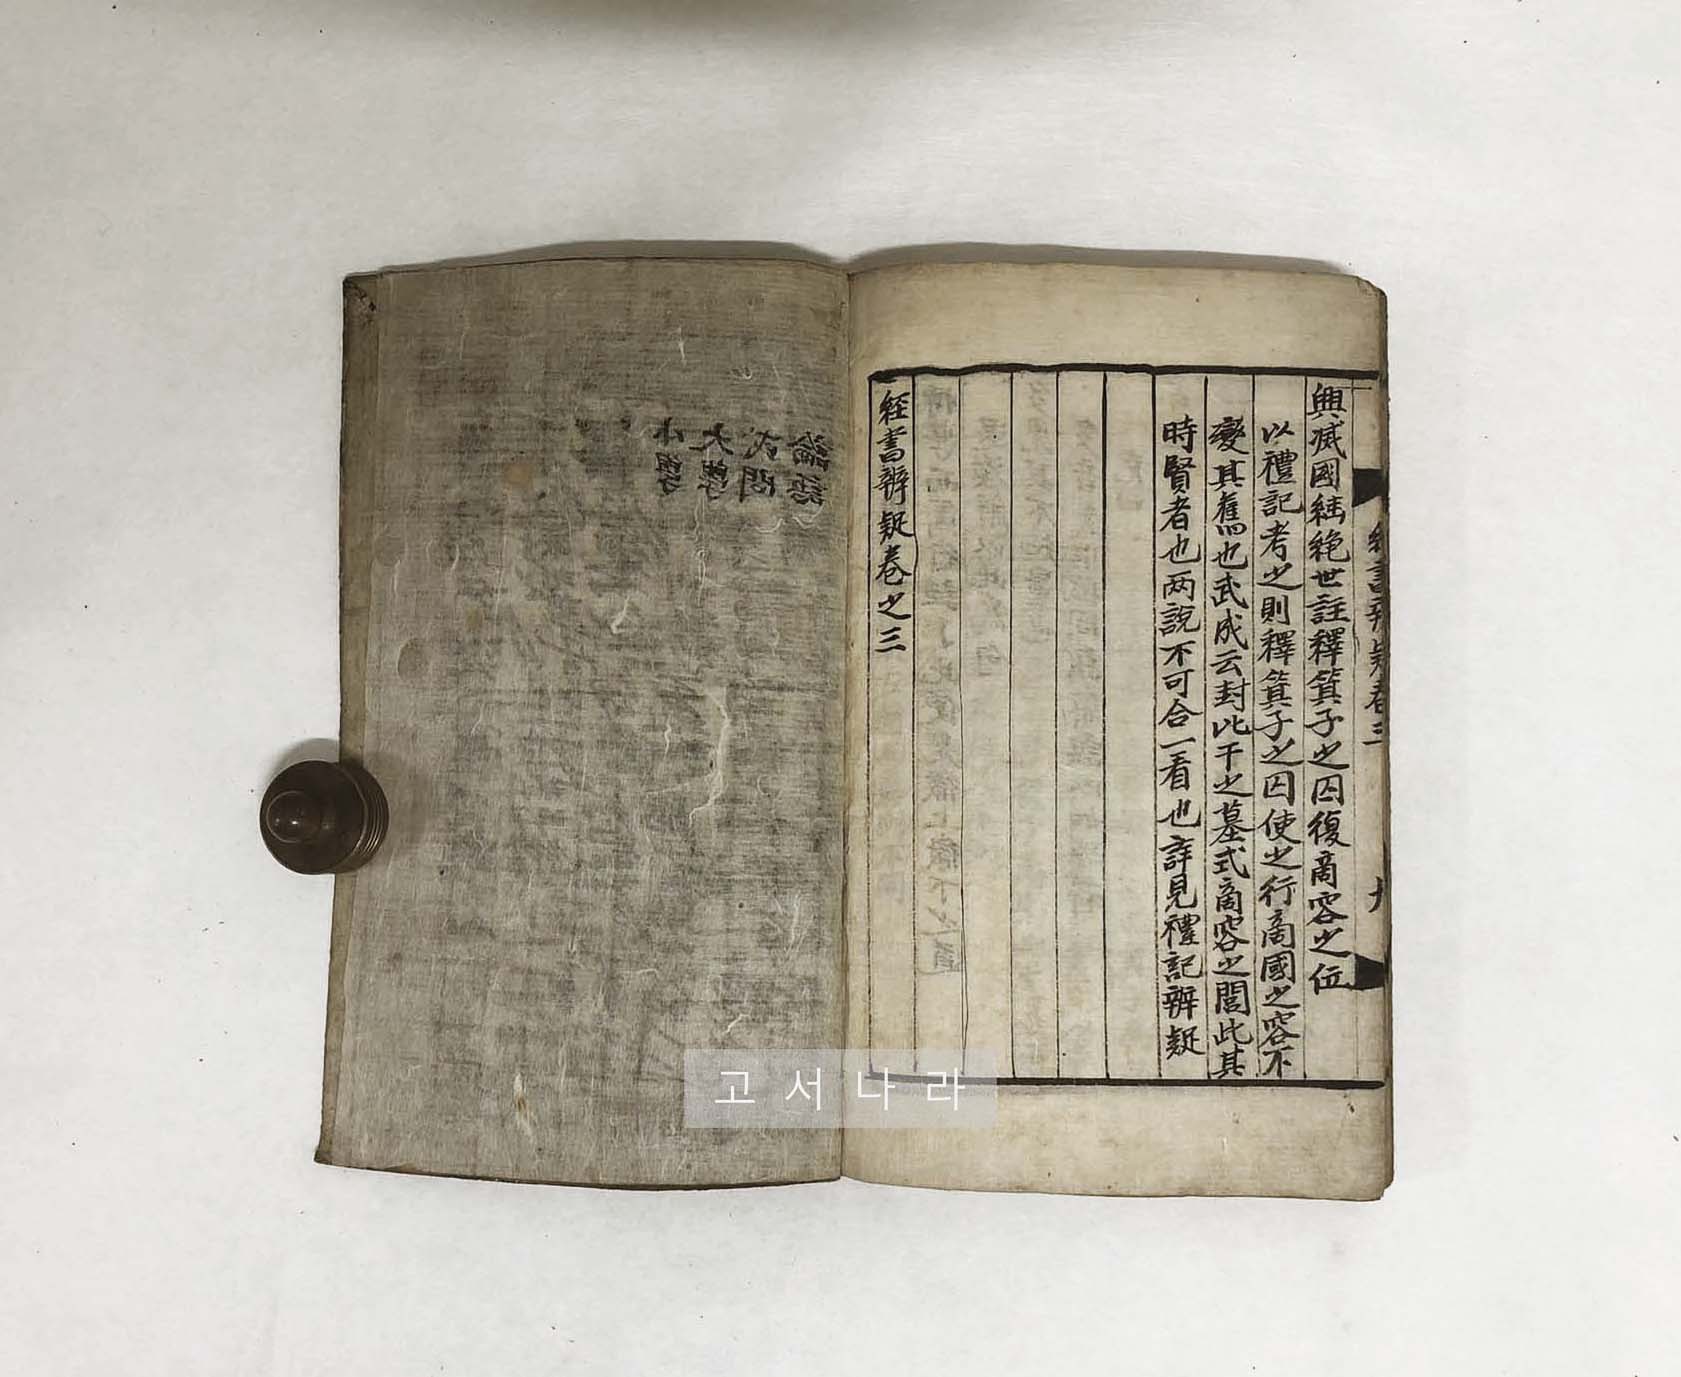 經書辨疑卷三
興滅國継絶世註釋箕子之囚復商容之位
以禮記考之則釋箕子之囚使之行商國之容不
變其舊也武成云封比干之墓式商容之閭此其
時賢者也两說不可合一看也詳見禮記辨疑
経書辨疑卷之三
論語
或問
大學
小學
고서나라